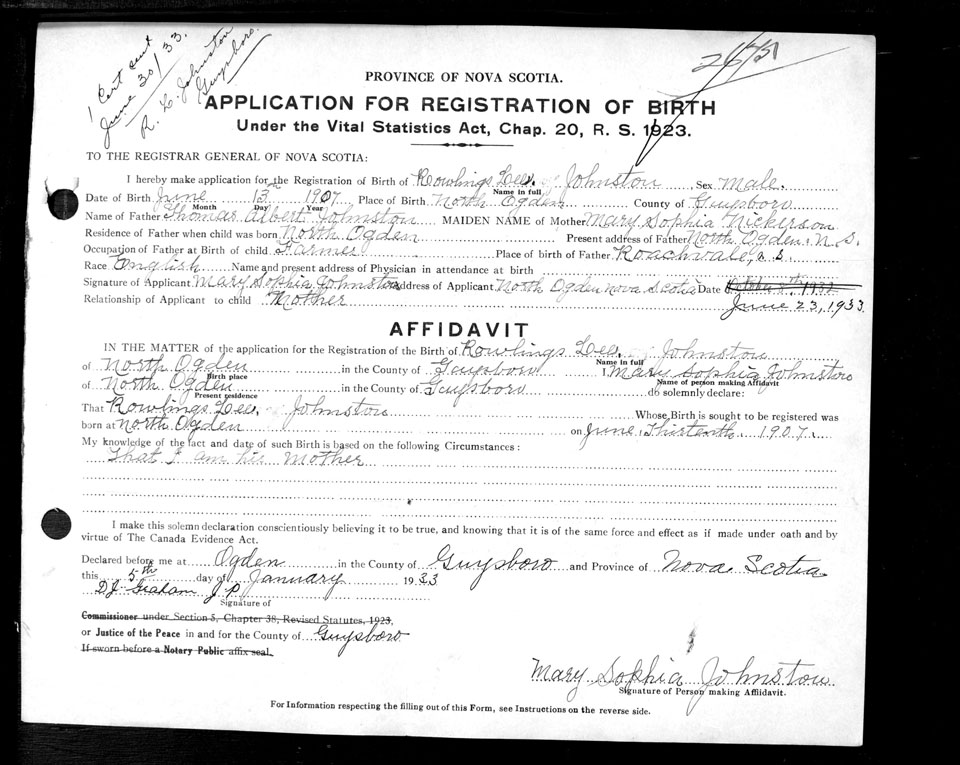 1 Cert sent
June 30/33.
R. L. Johnston
Guysboro.
PROVINCE OF NOVA SCOTIA.
APPLICATION FOR REGISTRATION OF BIRTH
Under the Vital Statistics Act, Chap. 20, R. S. 1923.
TO THE REGISTRAR GENERAL OF NOVA SCOTIA:
I hereby make application for the Registration of Birth of Rowlings Lee Johnston Sex Male.
Name in full
Date of Birth June 13th 1907 Place of Birth North Ogden County of Guysboro
Month Day Year
Name of Father Thomas Albert Johnston MAIDEN NAME of Mother Mary Sophia Nickerson
Residence of Father when child was born North Ogden Present address of Father North Ogden, N.S.
Occupation of Father at Birth of child Farmer Place of birth of Father Roachvale, N.S.
Race English Name and present address of Physician in attendance at birth
Signature of Applicant Mary Sophia Johnston Address of Applicant North Ogden Nova Scotia Date October 8th, 1932
Relationship of Applicant to child Mother June 23, 1933
AFFIDAVIT
IN THE MATTER of the application for the Registration of the Birth of Rowlings Lee. Johnston
Name in full
of North Ogden in the County of Guysboro I, Mary Sophia Johnston
Birth place Name of person making Affidavit
of North Ogden in the County of Guysboro do solemnly declare:
Present residence
That Rowlings Lee. Johnston Whose Birth is sought to be registered was
born at North Ogden on June Thirteenth 1907.
My knowledge of the fact and date of such Birth is based on the following Circumstances:
That I am his Mother
I make this solemn declaration conscientiously believing it to be true, and knowing that it is of the same force and effect as if made under oath and by
virtue of The Canada Evidence Act.
Declared before me at Ogden in the County of Guysboro and Province of Nova Scotia
this 5th day of January 1933
D.J. Graham J.P.
Signature of
Commissioner under Section 5, Chapter 38, Revised Statutes, 1923,
or Justice of the Peace in and for the County of Guysboro
If sworn before a Notary Public affix seal.
Mary Sophia Johnston
Signature of Person making Affidavit.
For Information respecting the filling out of this Form, see Instructions on the reverse side.